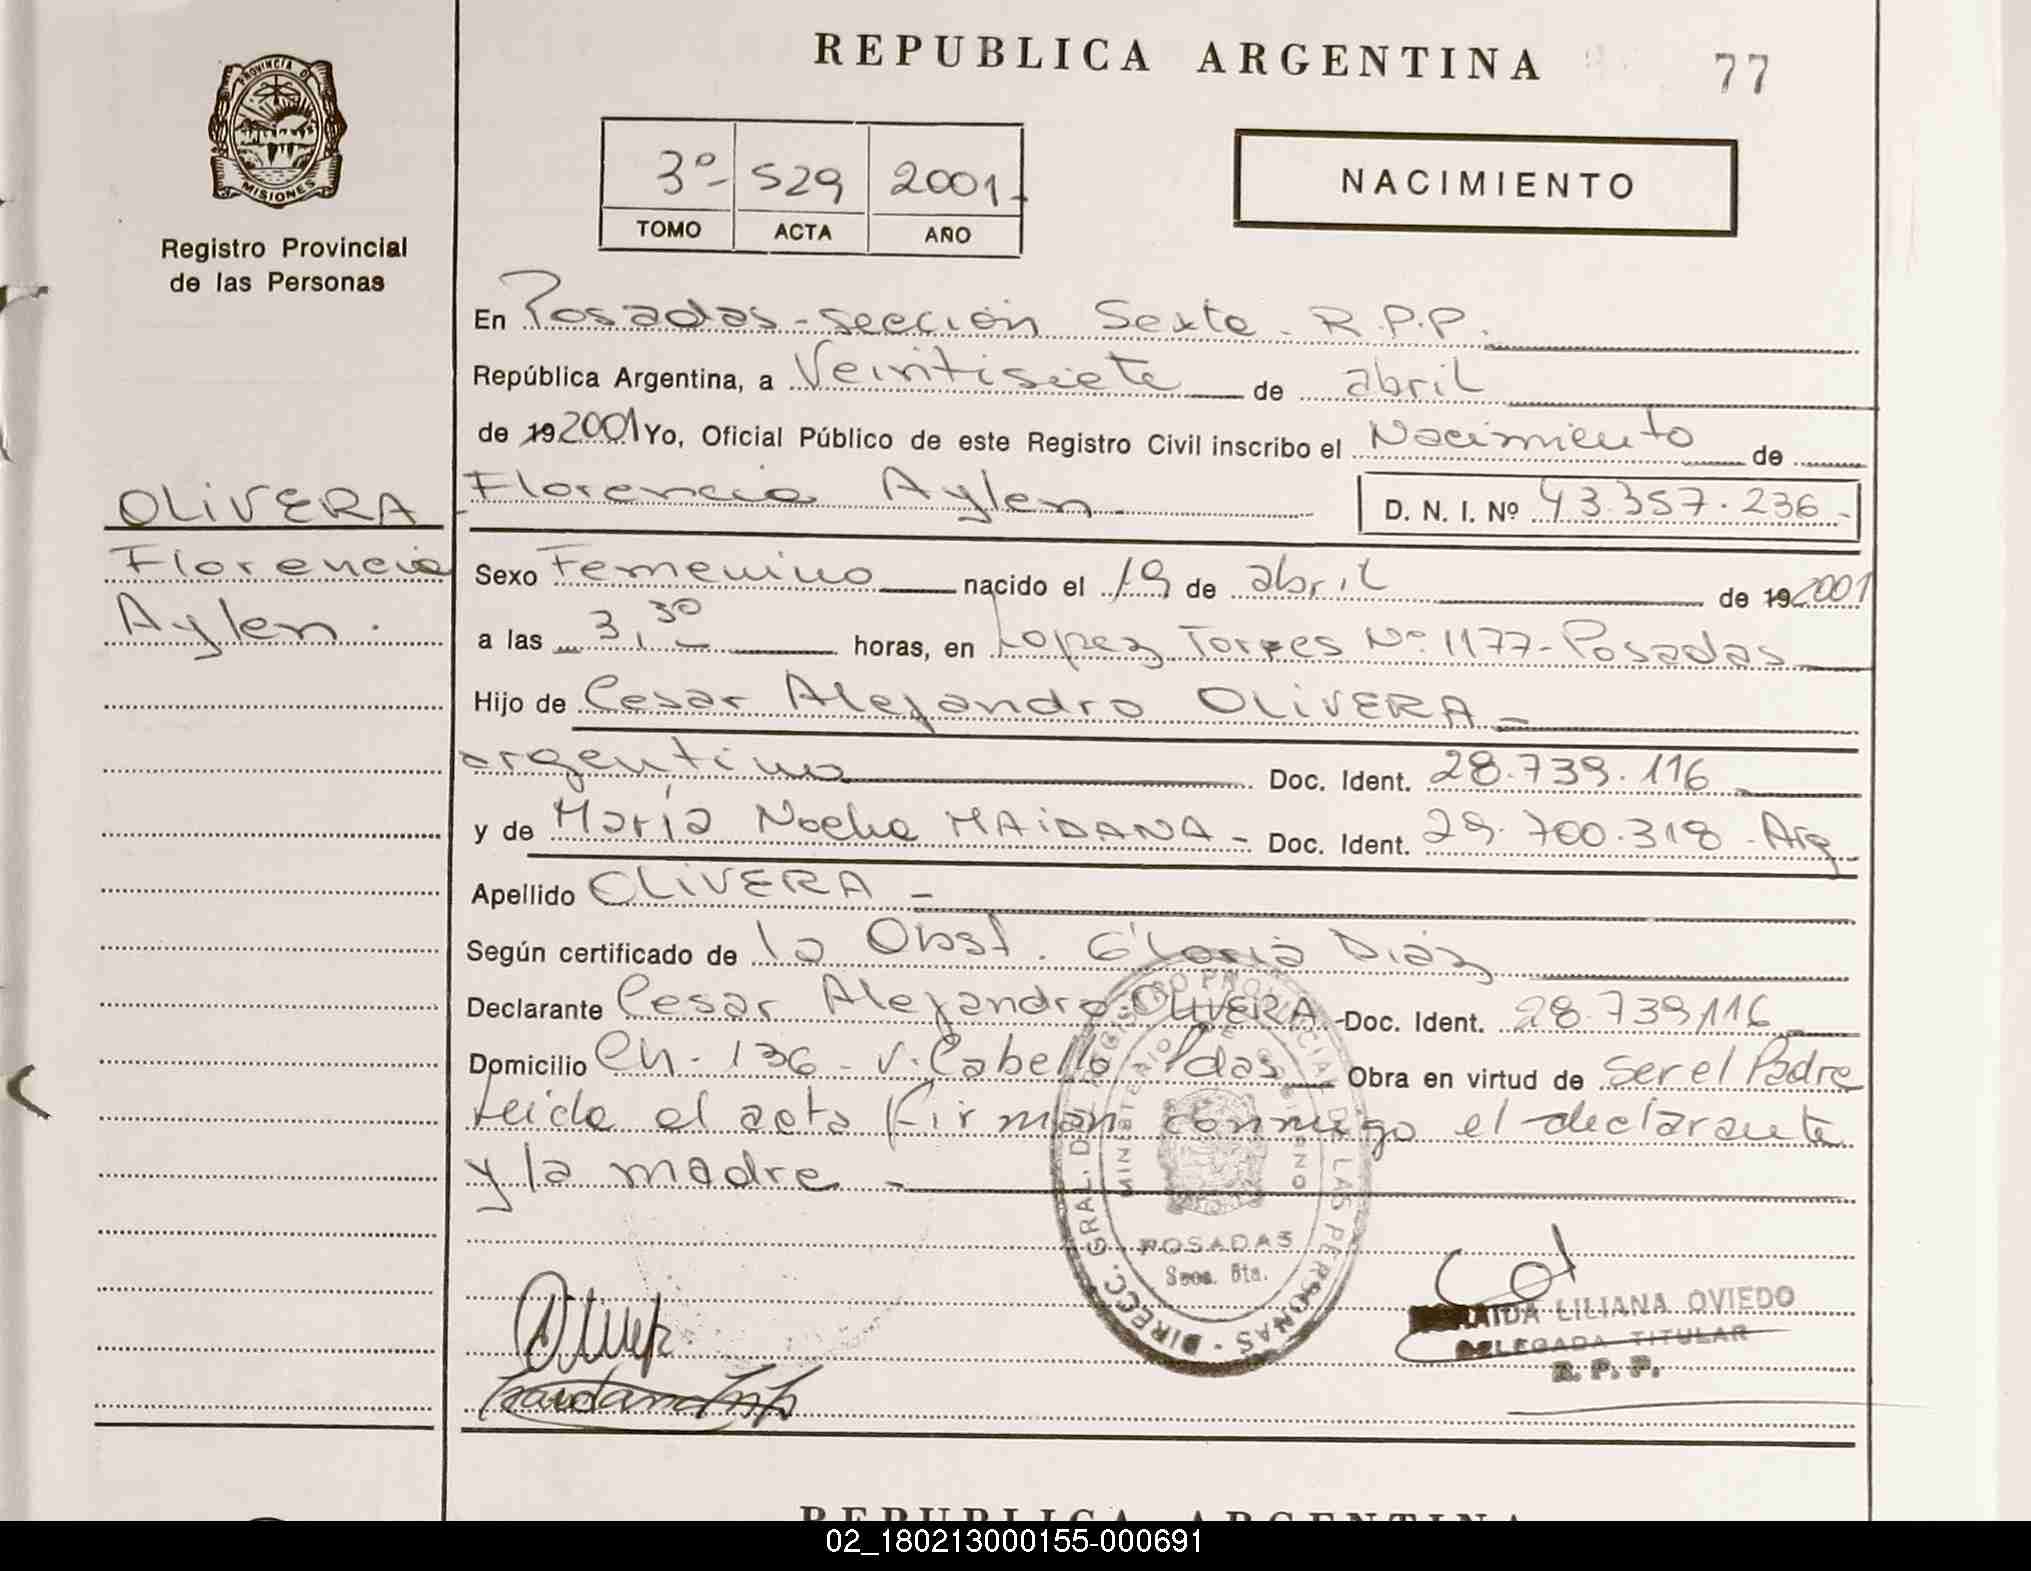 REPUBLICA ARGENTINA
77
PROVINCIA D
MISIONES
Registro Provincial
de las Personas
3º- 529 2001-
TOMO ACTA AÑO
NACIMIENTO
En Posadas - sección Sexta - R.P.P.
República Argentina, a Veintisiete de abril
de 19 2001 Yo, Oficial Público de este Registro Civil inscribo el Nacimiento de
OLIVERA
Florencia Aylen D. N. I. Nº 43.357.236-
Florencia
Aylen.
Sexo Femenino nacido el 19 de abril de 19 2001
a las 3,30 horas, en Lopez Torres Nº 1177 - Posadas
Hijo de Cesar Alejandro OLIVERA -
argentino Doc. Ident. 28.739.116
y de María Noelia MAIDANA - Doc. Ident. 29.700.318 - Arg
Apellido OLIVERA -
Según certificado de la Obst. Gloria Diaz
Declarante Cesar Alejandro OLIVERA - Doc. Ident. 28.739.116
Domicilio Ch. 136 - V. Cabello Pdas Obra en virtud de ser el Padre
Leida el acta firman conmigo el declarante
y la madre -
DIRECC. GRAL. DEL REGISTRO PROVINCIAL DE LAS PERSONAS
MINISTERIO DE GOBIERNO
POSADAS
Secc. 6ta.
LILIANA OVIEDO
DELEGADA TITULAR
R. P. P.
REPUBLICA ARGENTINA
02_180213000155-000691